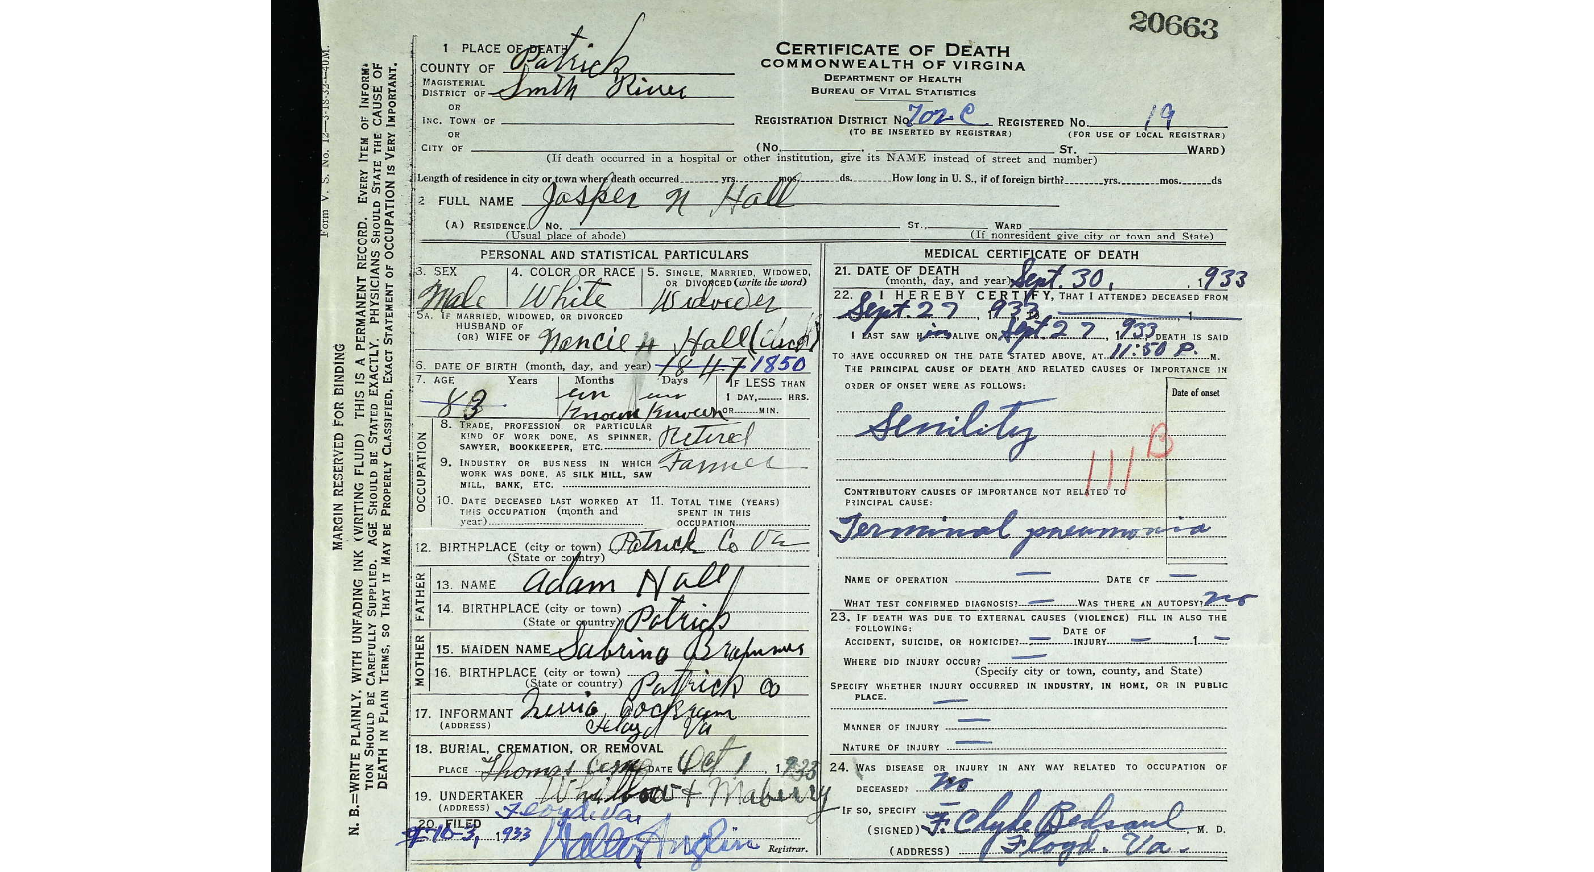 20663
1 PLACE OF DEATH
COUNTY OF Patrick
MAGISTERIAL DISTRICT OF Smith River
OR
INC. TOWN OF
OR
CITY OF
CERTIFICATE OF DEATH
COMMONWEALTH OF VIRGINIA
DEPARTMENT OF HEALTH
BUREAU OF VITAL STATISTICS
REGISTRATION DISTRICT No. 702 C REGISTERED No. 19
(TO BE INSERTED BY REGISTRAR) (FOR USE OF LOCAL REGISTRAR)
(No. ST. WARD)
(If death occurred in a hospital or other institution, give its NAME instead of street and number)
Length of residence in city or town where death occurred yrs. mos. ds. How long in U. S., if of foreign birth? yrs. mos. ds
2 FULL NAME Jasper N Hall
(A) RESIDENCE. No. ST., WARD
(Usual place of abode) (If nonresident give city or town and State)
PERSONAL AND STATISTICAL PARTICULARS
3. SEX Male
4. COLOR OR RACE White
5. SINGLE, MARRIED, WIDOWED, OR DIVORCED (write the word) Widower
5A. IF MARRIED, WIDOWED, OR DIVORCED
HUSBAND OF
(OR) WIFE OF Nancie H Hall
6. DATE OF BIRTH (month, day, and year) 1847 1850
7. AGE Years Months Days IF LESS THAN
1 DAY, HRS.
OR MIN.
83 un known un known
OCCUPATION
8. TRADE, PROFESSION OR PARTICULAR
KIND OF WORK DONE, AS SPINNER,
SAWYER, BOOKKEEPER, ETC. Retired
9. INDUSTRY OR BUSINESS IN WHICH
WORK WAS DONE, AS SILK MILL, SAW
MILL, BANK, ETC. Farmer
10. DATE DECEASED LAST WORKED AT
THIS OCCUPATION (month and
year)
11. TOTAL TIME (YEARS)
SPENT IN THIS
OCCUPATION
12. BIRTHPLACE (city or town) Patrick Co Va
(State or country)
FATHER
13. NAME Adam Hall
14. BIRTHPLACE (city or town)
(State or country) Patrick
MOTHER
15. MAIDEN NAME Sabrina
16. BIRTHPLACE (city or town)
(State or country) Patrick Co
17. INFORMANT Cockram
(ADDRESS) Floyd Va
18. BURIAL, CREMATION, OR REMOVAL
PLACE Thomas Cem DATE Oct 1, 1933
19. UNDERTAKER & Maberry
(ADDRESS) Floyd Va.
20. FILED 10-3, 1933 Anglin Registrar.
MEDICAL CERTIFICATE OF DEATH
21. DATE OF DEATH
(month, day, and year) Sept. 30, 1933
22. I HEREBY CERTIFY, THAT I ATTENDED DECEASED FROM
Sept. 27 1933 1
I LAST SAW him ALIVE ON Sept 27, 1933 DEATH IS SAID
TO HAVE OCCURRED ON THE DATE STATED ABOVE, AT 11:50 P. M.
THE PRINCIPAL CAUSE OF DEATH AND RELATED CAUSES OF IMPORTANCE IN
ORDER OF ONSET WERE AS FOLLOWS:
Date of onset
Senility
111 B
CONTRIBUTORY CAUSES OF IMPORTANCE NOT RELATED TO
PRINCIPAL CAUSE:
Terminal pneumonia
NAME OF OPERATION — DATE OF —
WHAT TEST CONFIRMED DIAGNOSIS? — WAS THERE AN AUTOPSY? no
23. IF DEATH WAS DUE TO EXTERNAL CAUSES (VIOLENCE) FILL IN ALSO THE
FOLLOWING:
ACCIDENT, SUICIDE, OR HOMICIDE? — DATE OF INJURY — 1 —
WHERE DID INJURY OCCUR? —
(Specify city or town, county, and State)
SPECIFY WHETHER INJURY OCCURRED IN INDUSTRY, IN HOME, OR IN PUBLIC
PLACE. —
MANNER OF INJURY —
NATURE OF INJURY —
24. WAS DISEASE OR INJURY IN ANY WAY RELATED TO OCCUPATION OF
DECEASED? no
IF SO, SPECIFY —
(SIGNED) F. Clyde Bedsaul M. D.
(ADDRESS) Floyd. Va.
Form V. S. No. 12—3-18-32—40M.
MARGIN RESERVED FOR BINDING
N. B.—WRITE PLAINLY, WITH UNFADING INK (WRITING FLUID) THIS IS A PERMANENT RECORD. EVERY ITEM OF INFORMA-
TION SHOULD BE CAREFULLY SUPPLIED. AGE SHOULD BE STATED EXACTLY. PHYSICIANS SHOULD STATE THE CAUSE OF
DEATH IN PLAIN TERMS, SO THAT IT MAY BE PROPERLY CLASSIFIED. EXACT STATEMENT OF OCCUPATION IS VERY IMPORTANT.